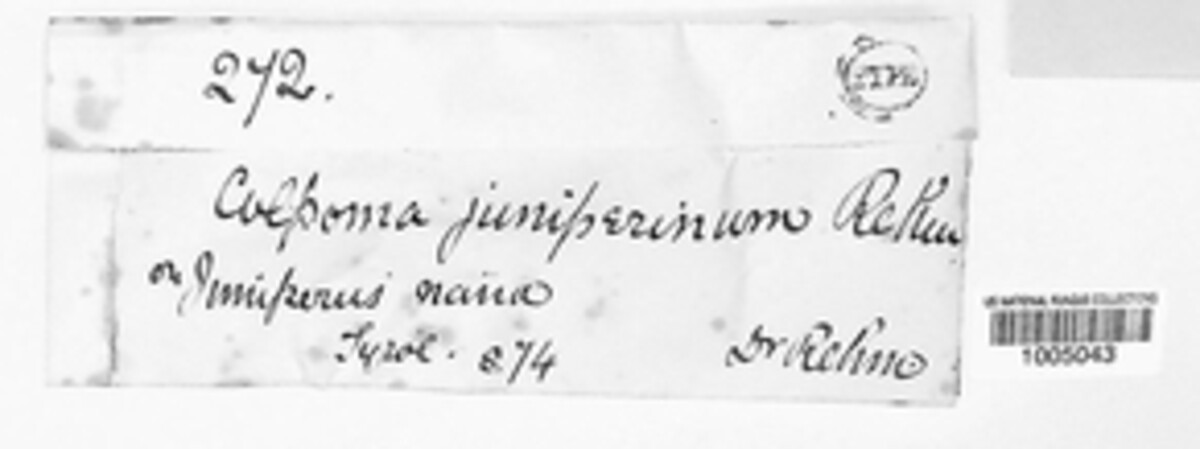 272.
Colpoma juniperinum Rehm
on Juniperus nana
Tyrol. 874
Dr Rehm
US NATIONAL FUNGUS COLLECTIONS
1005043